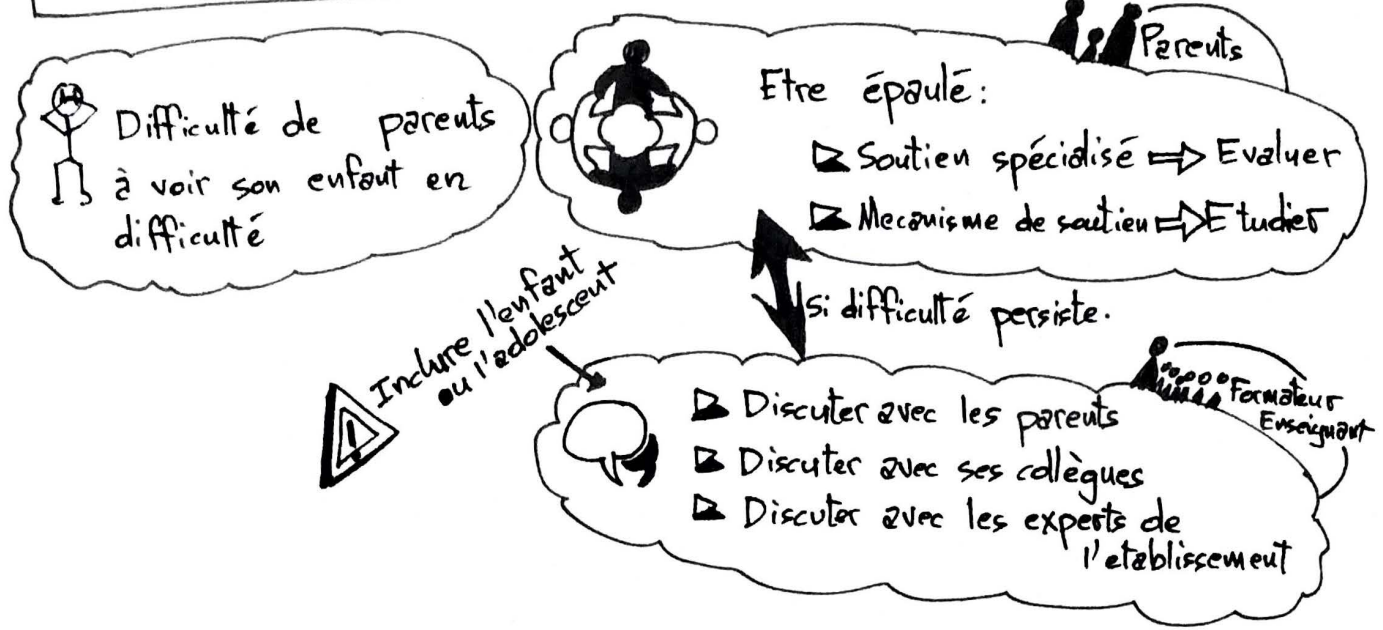 Difficulté de parents
à voir son enfant en
difficulté
Parents
Etre épaulé:
Soutien spécialisé ⇒ Evaluer
Mecanisme de soutien ⇒ Etudier
Si difficulté persiste.
Inclure l'enfant
ou l'adolescent
Formateur
Enseignant
Discuter avec les parents
Discuter avec ses collègues
Discuter avec les experts de
l'etablissement